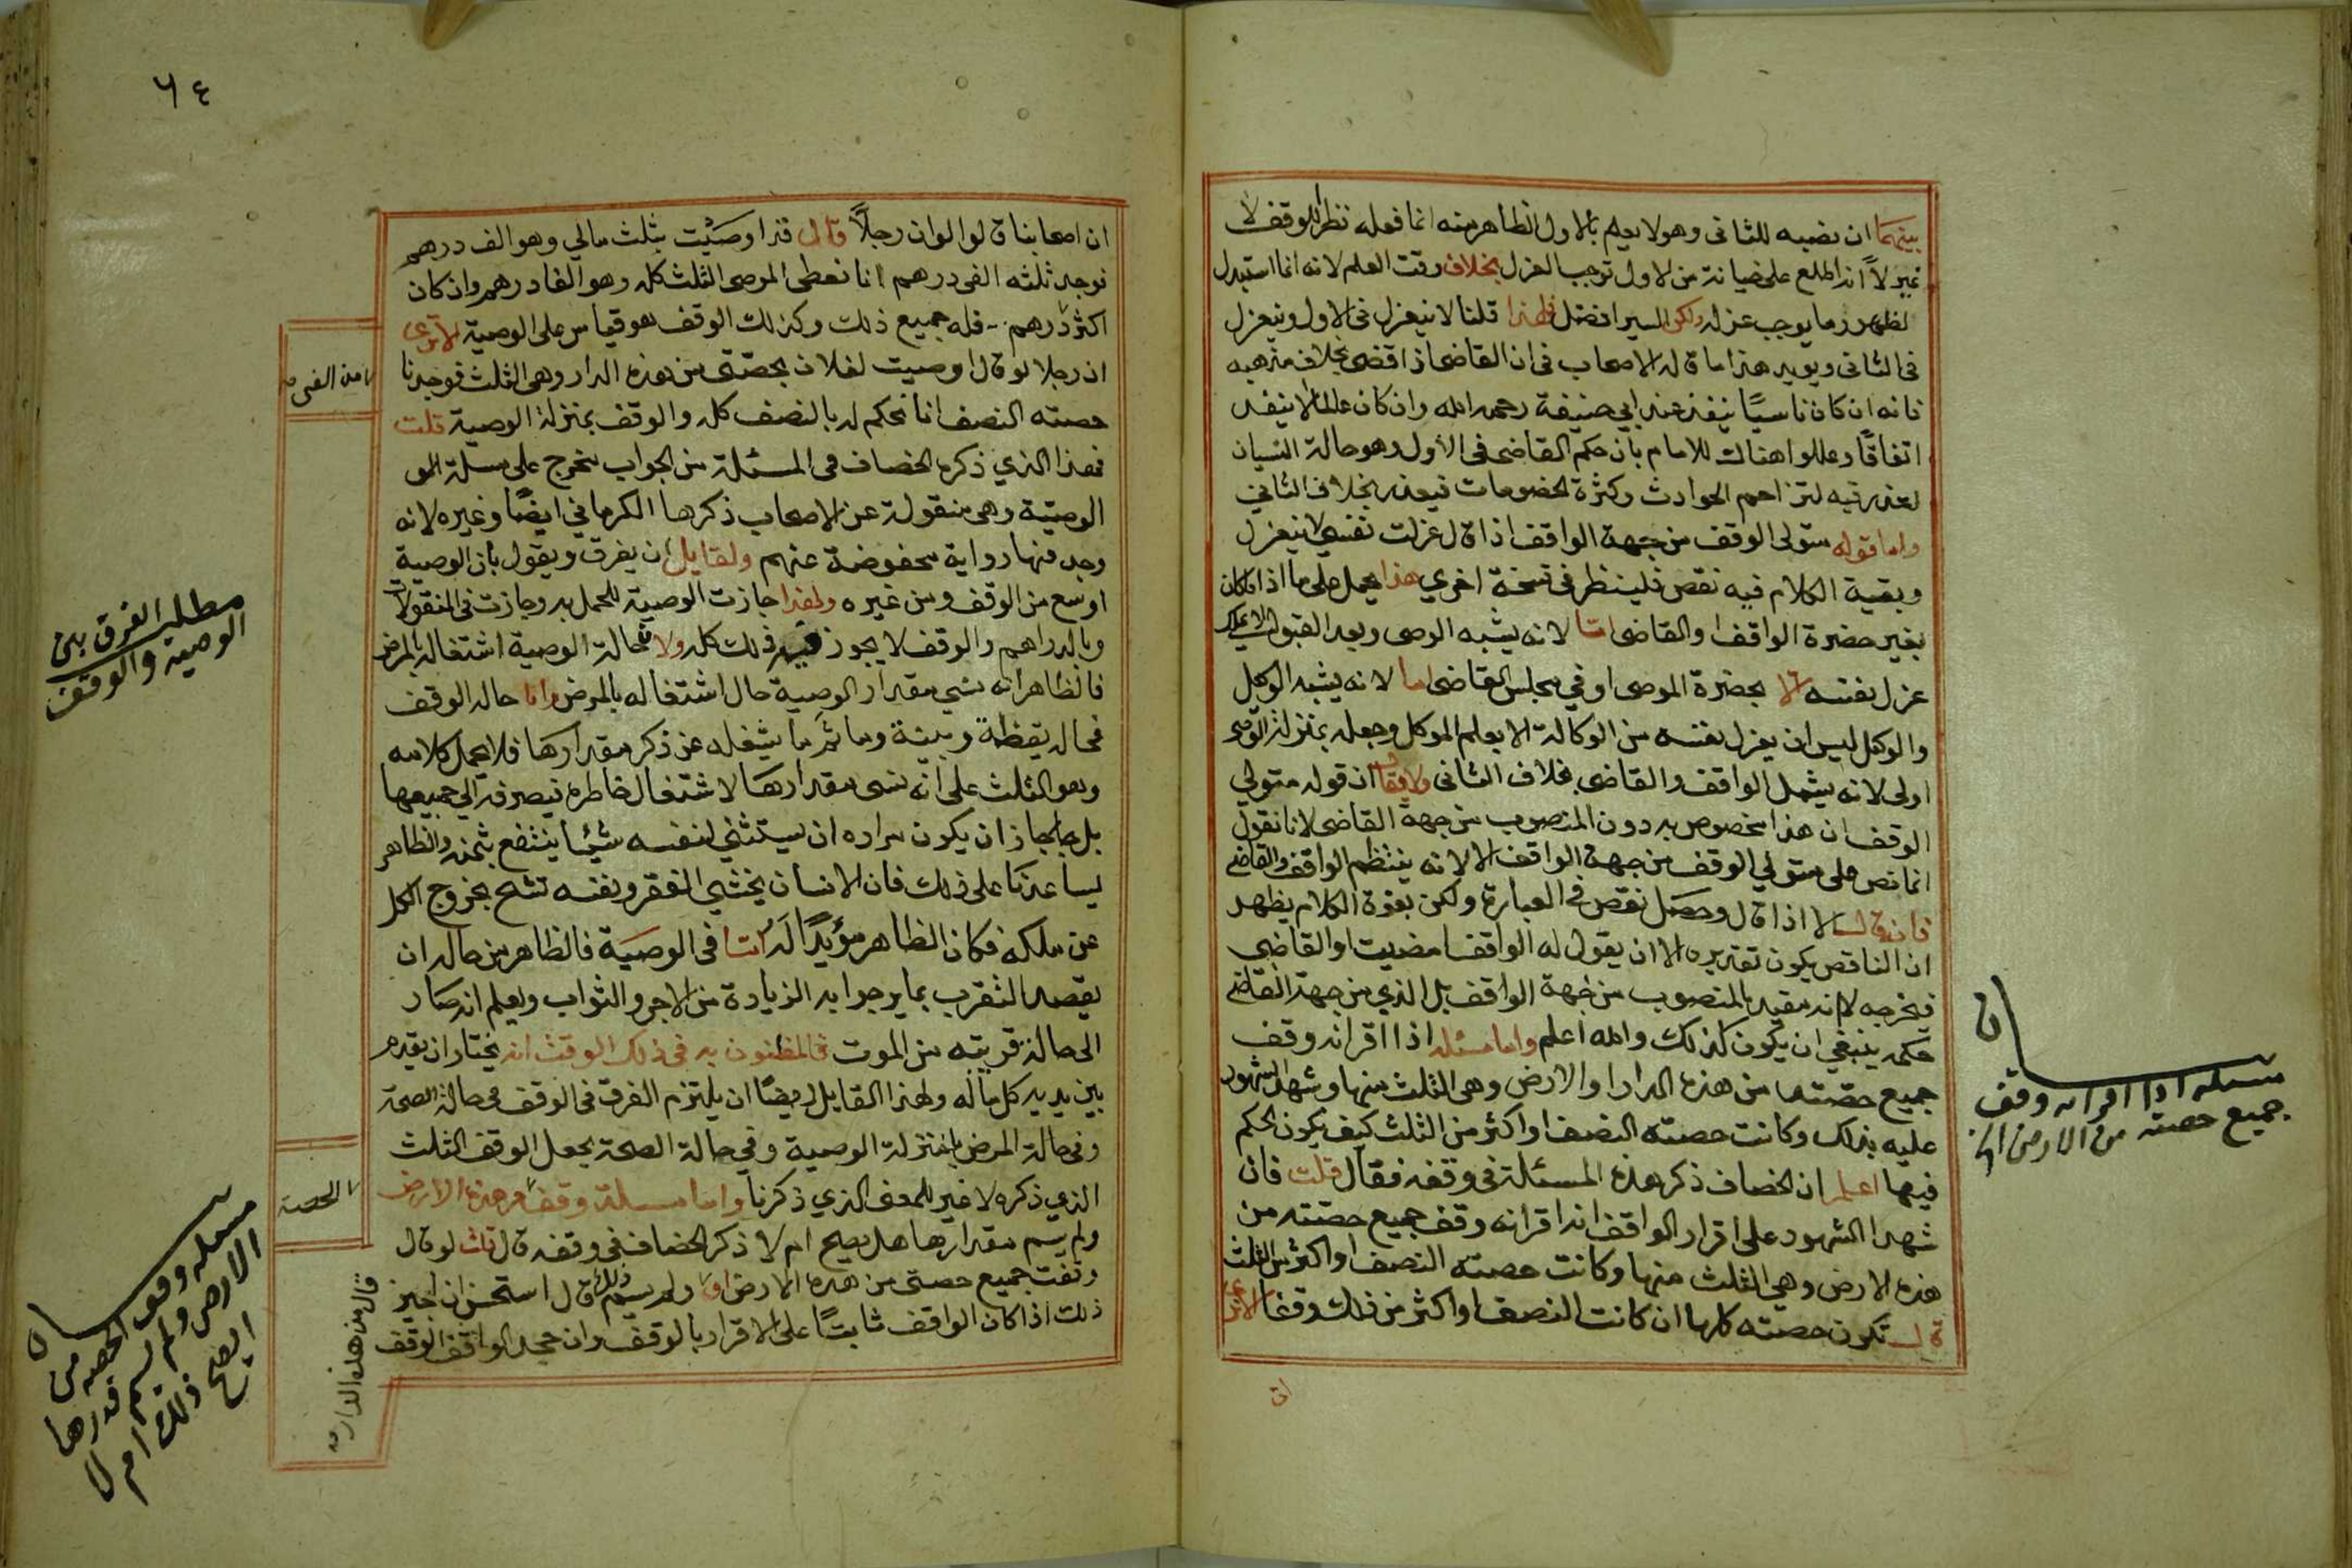 بينهما ان نصبه للثانى وهو لا يعلم بالاول الظاهر منه انما فعله نظرا للوقف لا
غير لا انه اطلع على خيانة من لاول توجب العزل بخلاف وقت العلم لانه انما استبدل
لظهور ما يوجب عزله ولكن السير افضل فلهذا قلنا لا ينعزل فى الاول وينعزل
فى الثانى ويويد هذا ما قاله الاصحاب فى ان القاضى اذا قضى بخلاف مذهبه
فانه ان كان ناسيًا ينفذ عند ابى حنيفة رحمه الله وان كان عالما لا ينفذ
اتفاقًا وعللوا هناك للامام بان حكم القاضى فى الأول وهو حالة النسيان
لعذر فيه لتزاحم الحوادث وكثرة الخصومات فيعذر بخلاف الثانى
واما قوله متولى الوقف من جهة الواقف اذا قال عزلت نفسى لا ينعزل
وبقية الكلام فيه نقص فلينظر فى نسخة اخرى هذا يحمل على ما اذا كان
بغير حضرة الواقف او القاضى اما لانه يشبه الوصى وبعد القبول لا يملك
عزل نفسه الا بحضرة الموصى او فى مجلس القاضى اما لانه يشبه الوكيل
والوكيل ليس ان يعزل نفسه من الوكالة الا بعلم الموكل وجعله بمنزلة الوصى
اولى لانه يشمل الواقف والقاضى بخلاف الثانى ولا يقال ان قوله متولى
الوقف ان هذا مخصوص به دون المنصوب من جهة القاضى لانا نقول
انما نص على متولي الوقف من جهة الواقف الا لانه ينتظم الواقف والقاضى
فان قال الا اذا قال وحصل نقص فى العبارة ولكن بقوة الكلام يظهر
ان الناقص يكون تقديره الا ان يقول له الواقف امضيت او القاضى
فيخرجه لانه مقيد بالمنصوب من جهة الواقف بل الذي من جهة القاضى
حكمه ينبغى ان يكون كذلك والله اعلم واما مسئله اذا اقر انه وقف
جميع حصته من هذه الدار او الارض وهى الثلث منها وشهد الشهود
عليه بذلك وكانت حصته النصف او اكثر من الثلث كيف يكون الحكم
فيها اعلم ان الخصاف ذكر هذه المسئلة فى وقفه فقال قلت فان
شهد الشهود على اقرار الواقف انه اقر انه وقف جميع حصته من
هذه الارض وهى الثلث منها وكانت حصته النصف او اكثر من الثلث
قال تكون حصته كلها ان كانت النصف او اكثر من ذلك وقفا الا ترى
ان
مسئله اذا اقر انه وقف
جميع حصته من الارض الخ
٦٤
ان اصحابنا قالوا لو ان رجلًا قال قد اوصيت بثلث مالي وهو الف درهم
فوجد ثلثه الفى درهم انا نعطى الموصى الثلث كله وهو الفا درهم وان كان
اكثر درهم فله جميع ذلك وكذلك الوقف هو قياس على الوصية الا ترى
ان رجلا لو قال اوصيت لفلان بحصتى من هذه الدار وهى الثلث فوجدنا
حصته النصف انا نحكم له بالنصف كله والوقف بمنزلة الوصية قلت
فهذا الذي ذكره الخصاف فى المسئلة من الجواب يتخرج على مسئلة
الوصية وهى منقولة عن الاصحاب ذكرها الكرمانى ايضًا وغيره لانه
وجد منها رواية محفوضة عنهم ولقايل ان يفرق ويقول بان الوصية
اوسع من الوقف ومن غيره ولهذا جازت الوصية للحمل به وجازت فى المنقولات
وبالدراهم والوقف لا يجوز فيه ذلك كله ولا حالة الوصية اشتغاله بالمرض
فالظاهر انه نسى مقدار الوصية حال اشتغاله بالمرض وانا حاله الوقف
فحاله يقظة وبينة وما ثم ما يشغله عن ذكر مقدارها فلا يحمل كلامه
وهو الثلث على انه نسى مقدارها لاشتغال خاطره فيصرفه الي جميعها
بل جاز ان يكون مراده ان يستثني لنفسه شيئًا ينتفع بثمنه والظاهر
يساعدنا على ذلك فان الانسان يخشى الفقر ونفسه تشح بخروج الكل
عن ملكه فكان الظاهر مؤيدًا له اما فى الوصية فالظاهر من حاله ان
يقصد التقرب بما يرجوا به الزيادة من الاجر والثواب ويعلم انه صار
الى حالة قريبة من الموت فالمظنون به فى ذلك الوقت انه يختار ان يقدم
بين يديه كل ماله ولهذا القايل ايضًا ان يلتزم الفرق فى الوقف فى حالة الصحة
وفى حالة المرض بمنزلة الوصية وفى حالة الصحة يجعل الوقف الثلث
الذي ذكره لا غير للمعنى الذي ذكرنا واما مسئلة وقف من هذه الارض
ولم يسم مقدارها هل يصح ام لا ذكر الخصاف فى وقفه قال قلت لو قال
وقفت جميع حصتى من هذه الارض ولم يسم ذلك قال استحسن ان اجيز
ذلك اذا كان الواقف ثابتًا على الاقرار بالوقف وان جحد الواقف الوقف
من الفى
مطلب الفرق بين
الوصية والوقف
الحصة
قال من هذه الدار
مسئله وقف الحصه من
الارض ولم يسم قدرها
ايصح ذلك ام لا